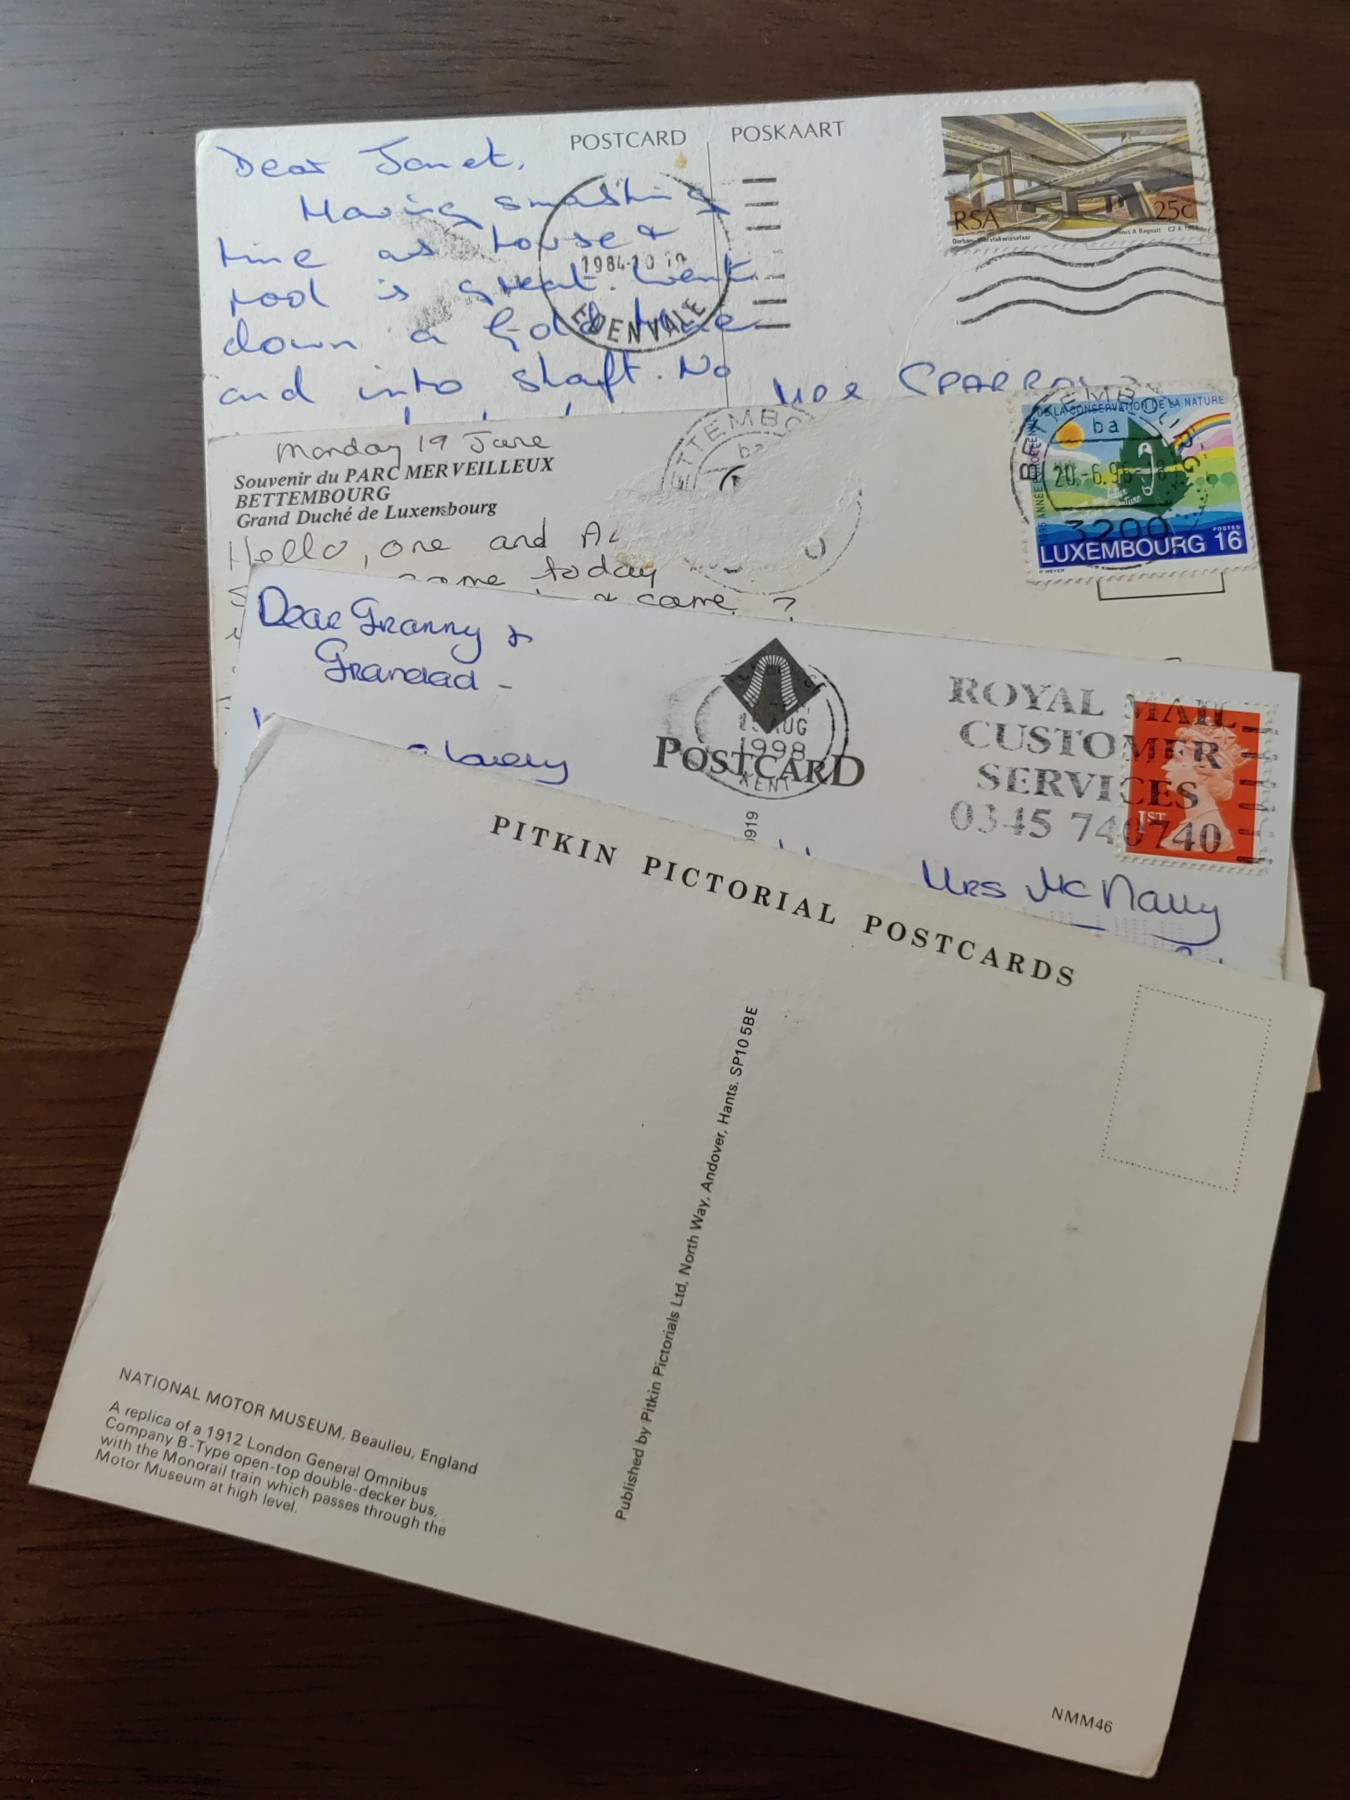 POSTCARD POSKAART
Dear Janet,
Having smashing
time as house &
pool is great. Went
down a Gold Mine
and into shaft. No
1984-10-10
EDENVALE
RSA 25c
Mrs SPARRAW
Monday 19 June
Souvenir du PARC MERVEILLEUX
BETTEMBOURG
Grand Duché de Luxembourg
Hello, one and
came today
& came ?
BETTEMBOURG
ba
DE LA CONSERVATION DE LA NATURE
BETTEMBOURG
ba
3200
POSTES
LUXEMBOURG 16
Dear Granny &
Grandad -
a lovely
AUG
1998
KENT
POSTCARD
ROYAL MAIL
CUSTOMER
SERVICES
0345 740740
1ST
Mrs McNally
PITKIN PICTORIAL POSTCARDS
Published by Pitkin Pictorials Ltd, North Way, Andover, Hants. SP10 5BE
NATIONAL MOTOR MUSEUM, Beaulieu, England
A replica of a 1912 London General Omnibus
Company B-Type open-top double-decker bus,
with the Monorail train which passes through the
Motor Museum at high level.
NMM46